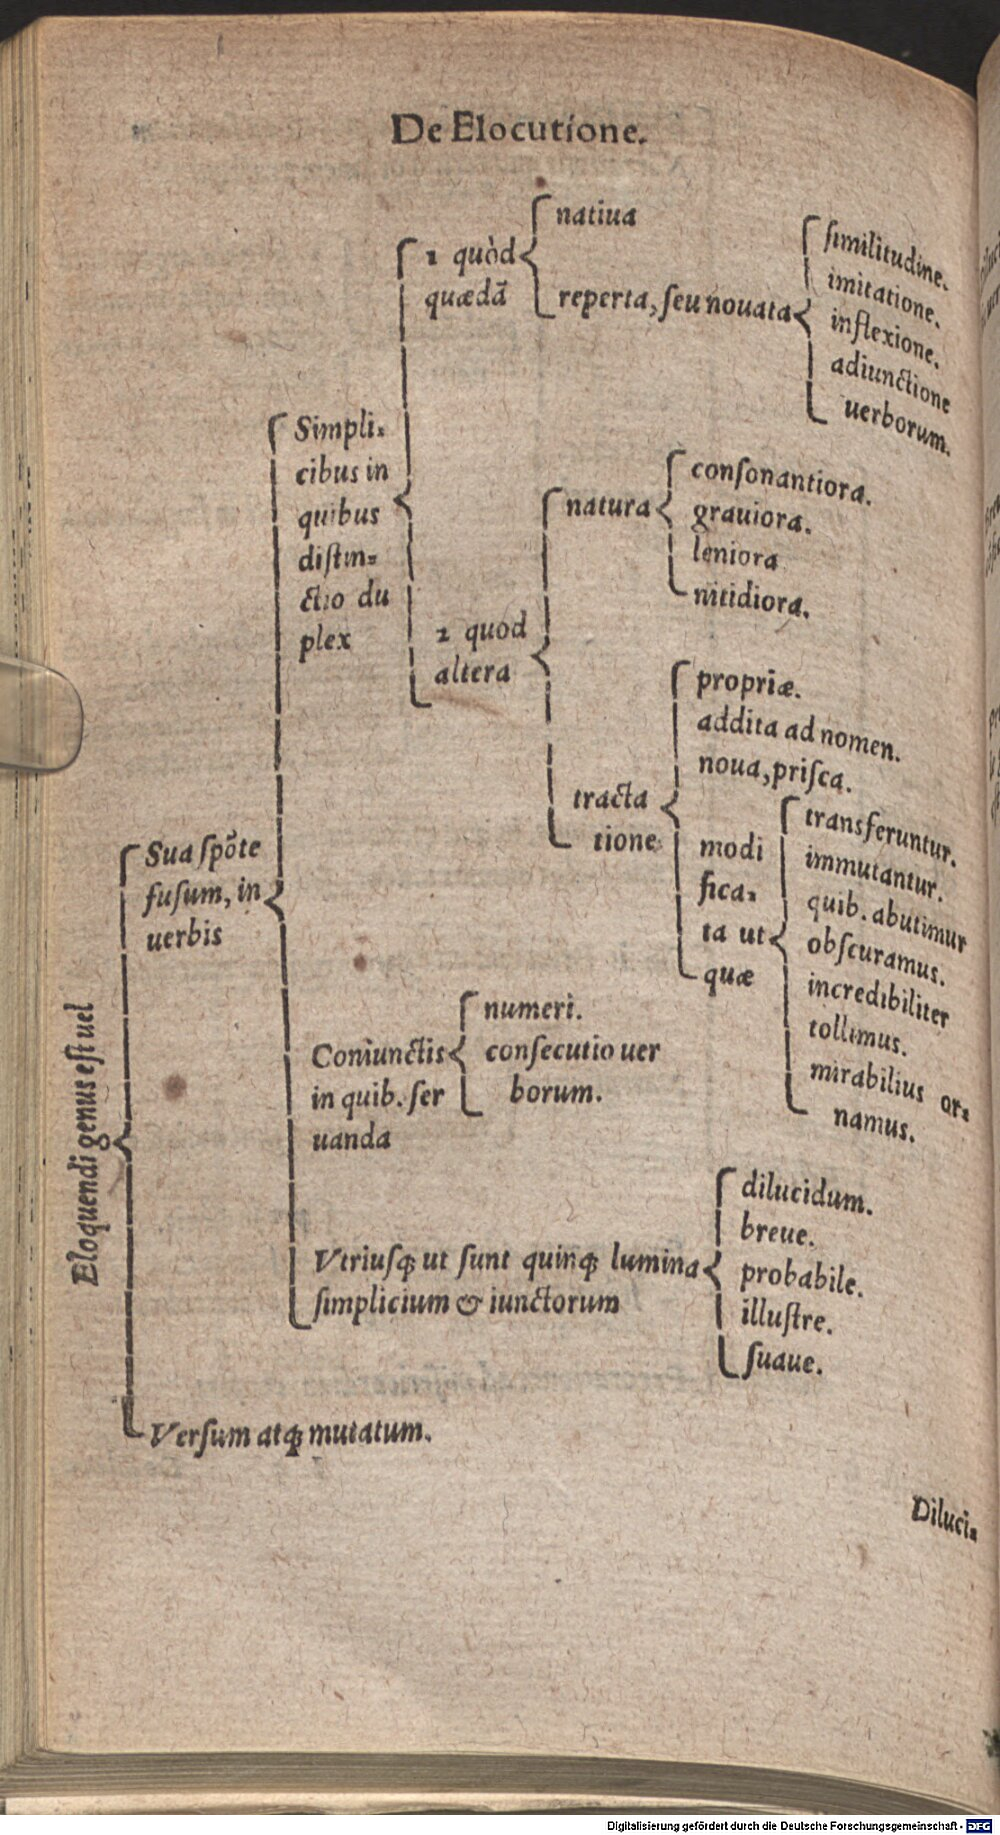 De Elocutione.
Eloquendi genus est uel
Sua spõte
fusum, in
uerbis
Simpli-
cibus in
quibus
distin-
ctio du
plex
1 quòd
quædã
natiua
reperta, seu nouata
similitudine.
imitatione.
inflexione.
adiunctione
uerborum.
2 quod
altera
natura
consonantiora.
grauiora.
leniora
nitidiora.
tracta
tione
propriæ.
addita ad nomen.
noua, prisca.
modi
fica-
ta ut
quæ
transferuntur.
immutantur.
quib. abutimur
obscuramus.
incredibiliter
tollimus.
mirabilius or-
namus.
Coniunctis
in quib. ser
uanda
numeri.
consecutio uer
borum.
Vtriusq; ut sunt quinq; lumina
simplicium & iunctorum
dilucidum.
breue.
probabile.
illustre.
suaue.
Versum atq; mutatum.
Diluci-
Digitalisierung gefördert durch die Deutsche Forschungsgemeinschaft - DFG